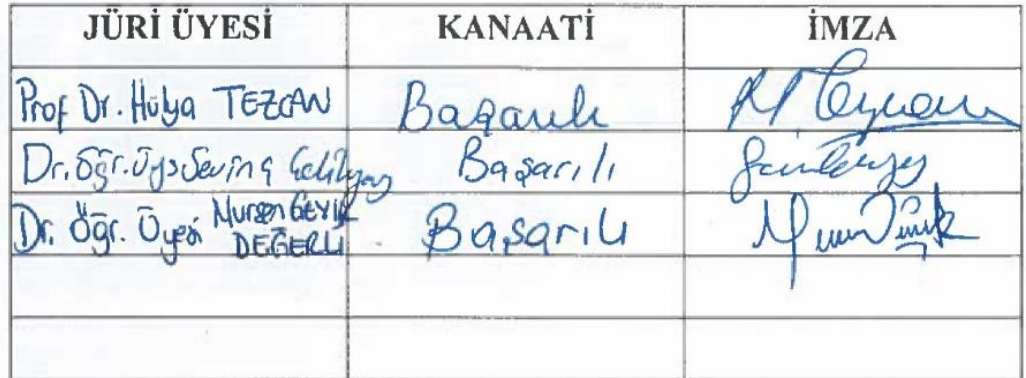 JÜRİ ÜYESİ KANAATİ İMZA
Prof Dr. Hülya TEZCAN Başarılı
Dr. Öğr. Üys Sevinç Başarılı
Dr. Öğr. Üyesi Nurşen GEYİK DEĞERLİ Başarılı